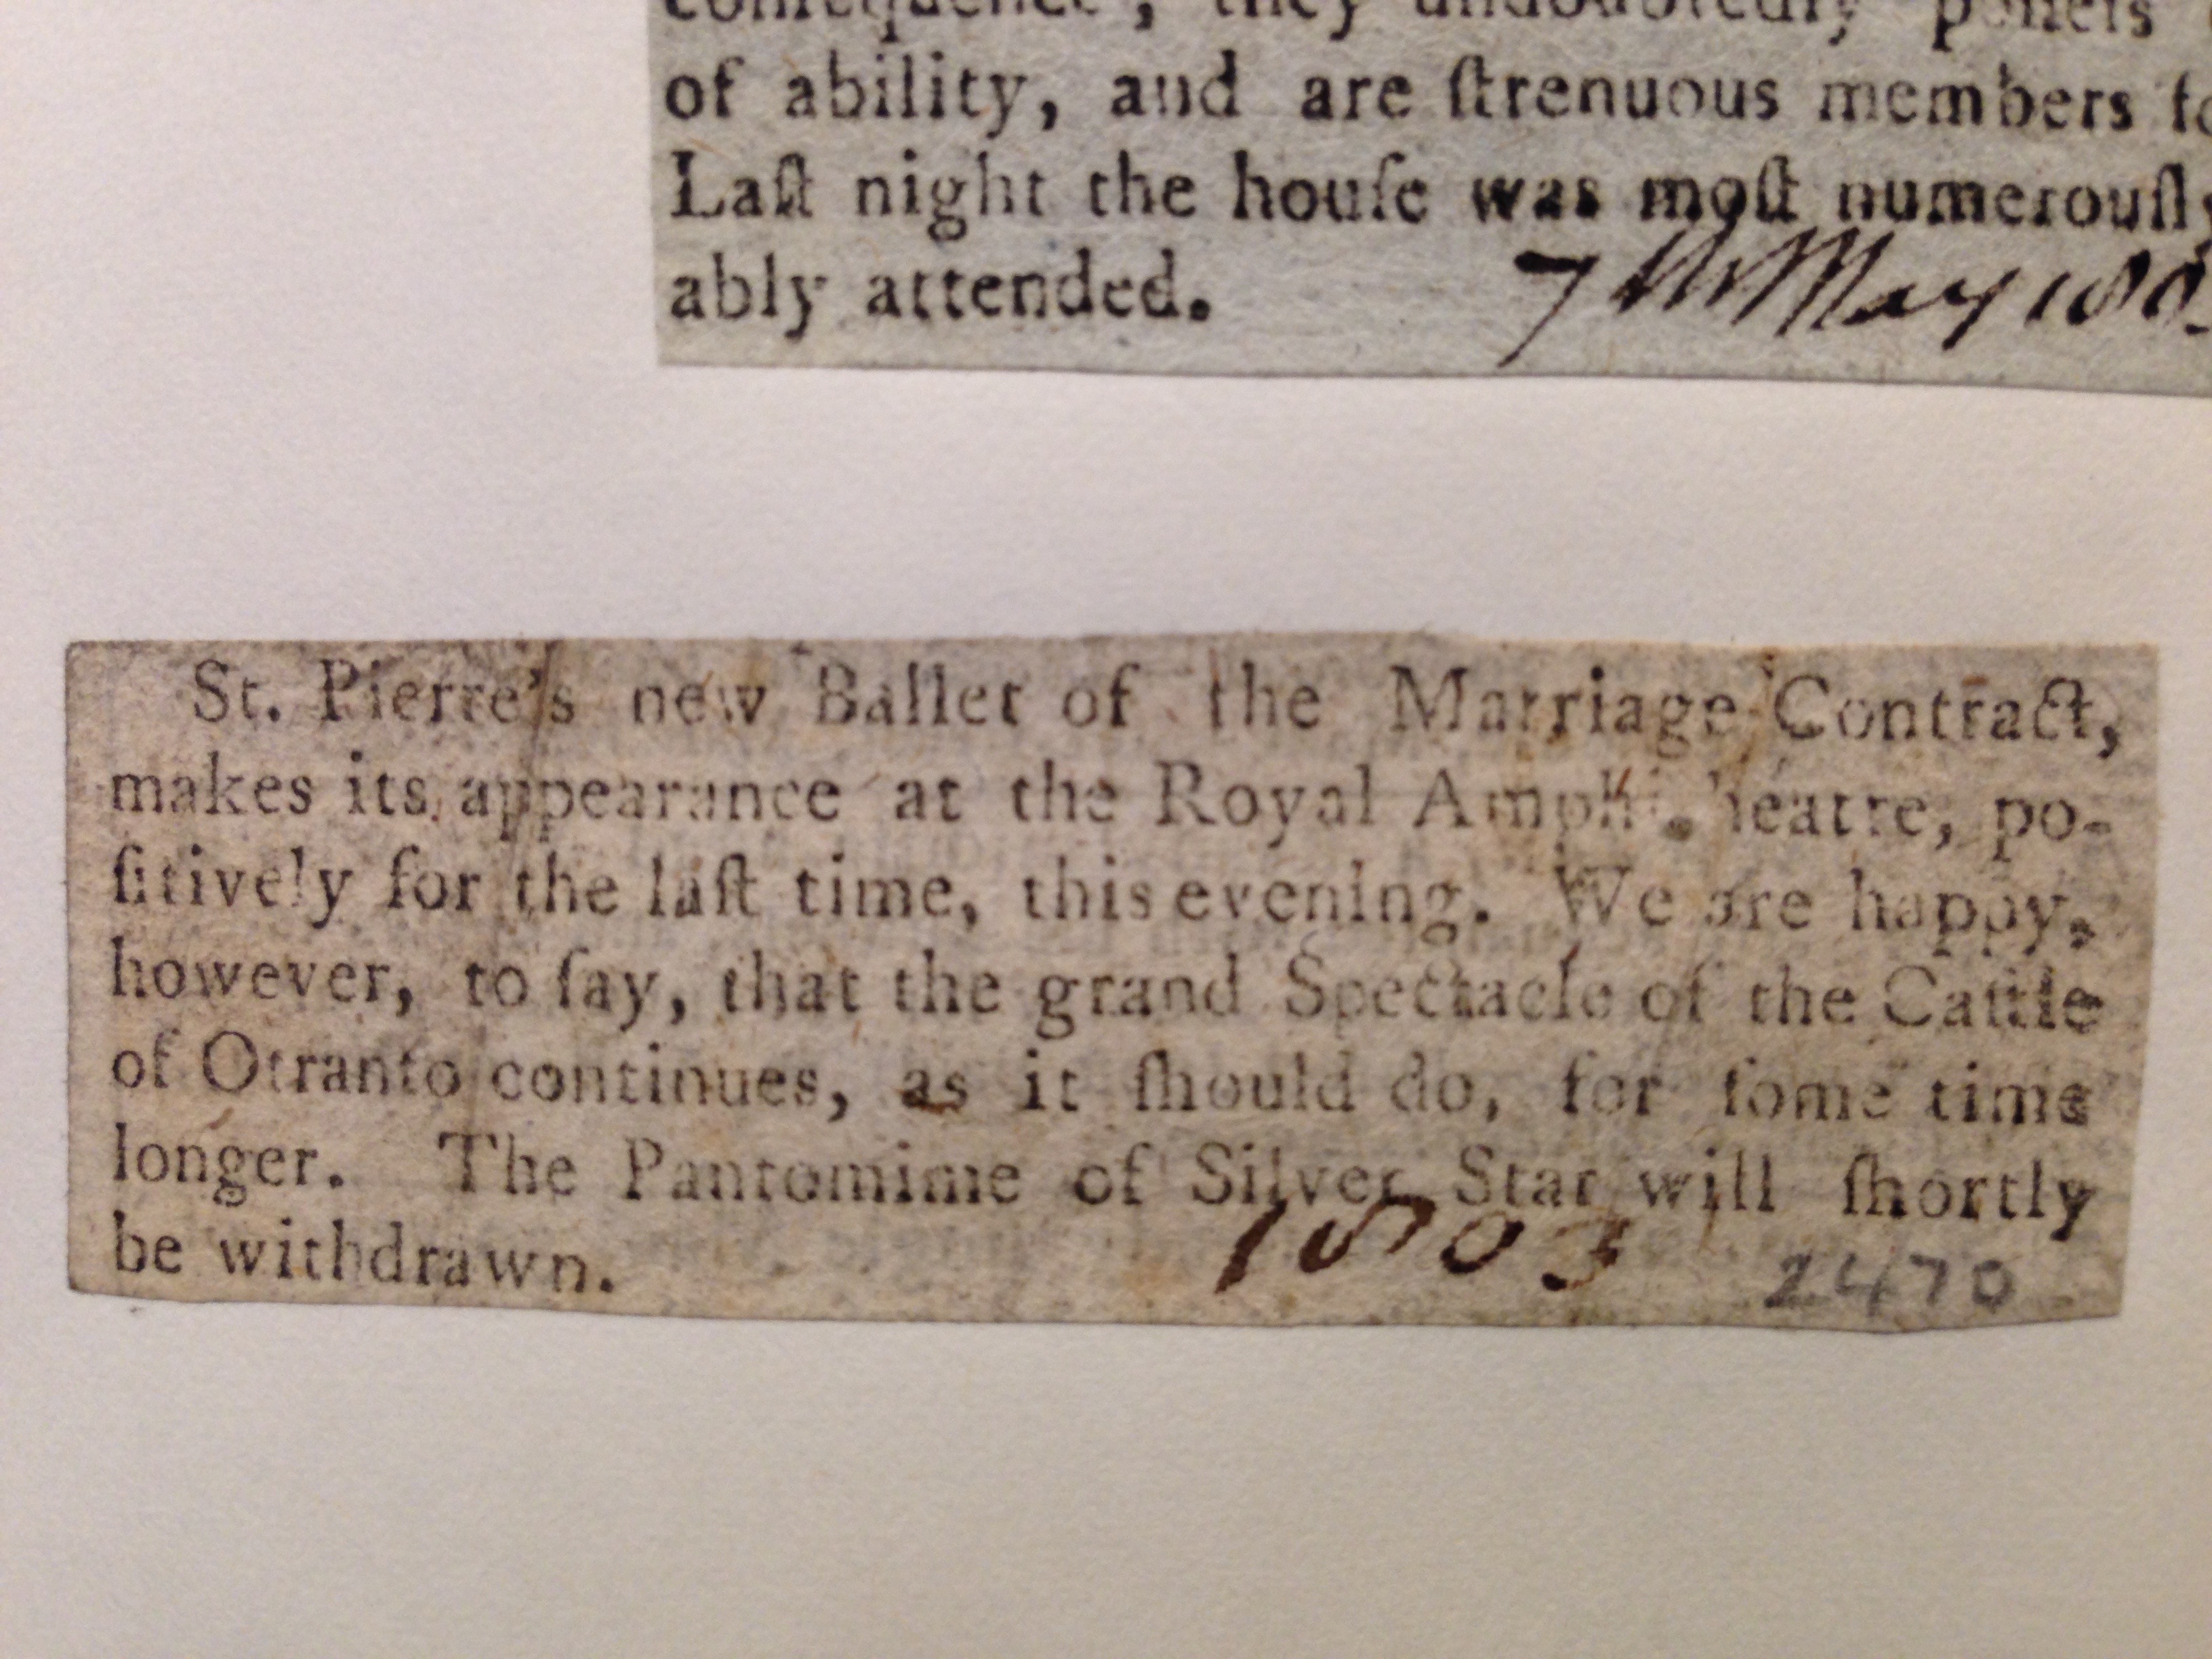 they undoubtedly
of ability, and are ſtrenuous members
Laſt night the houſe was moſt numerouſly
ably attended. 7th May 180
St. Pierre's new Ballet of the Marriage Contract,
makes its appearance at the Royal Amphitheatre, po-
ſitively for the laſt time, this evening. We are happy,
however, to ſay, that the grand Spectacle of the Caſtle
of Otranto continues, as it ſhould do, for ſome time
longer. The Pantomime of Silver Star will ſhortly
be withdrawn. 1803 2470